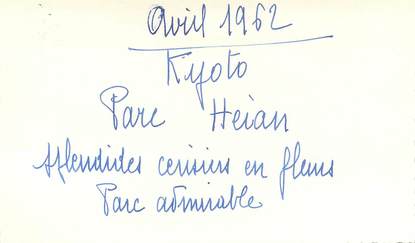 Avril 1962
Kyoto
Parc Heian
Splendides cerisiers en fleurs
Parc admirable